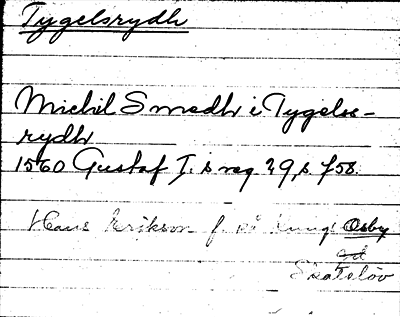 Tygelsrydh
Michil Smedh i Tygels-
rydh
1560 Gustaf I. s reg 29, s 758.
Hans Erikson f. på Kungs Osby
gd
Skatelöv